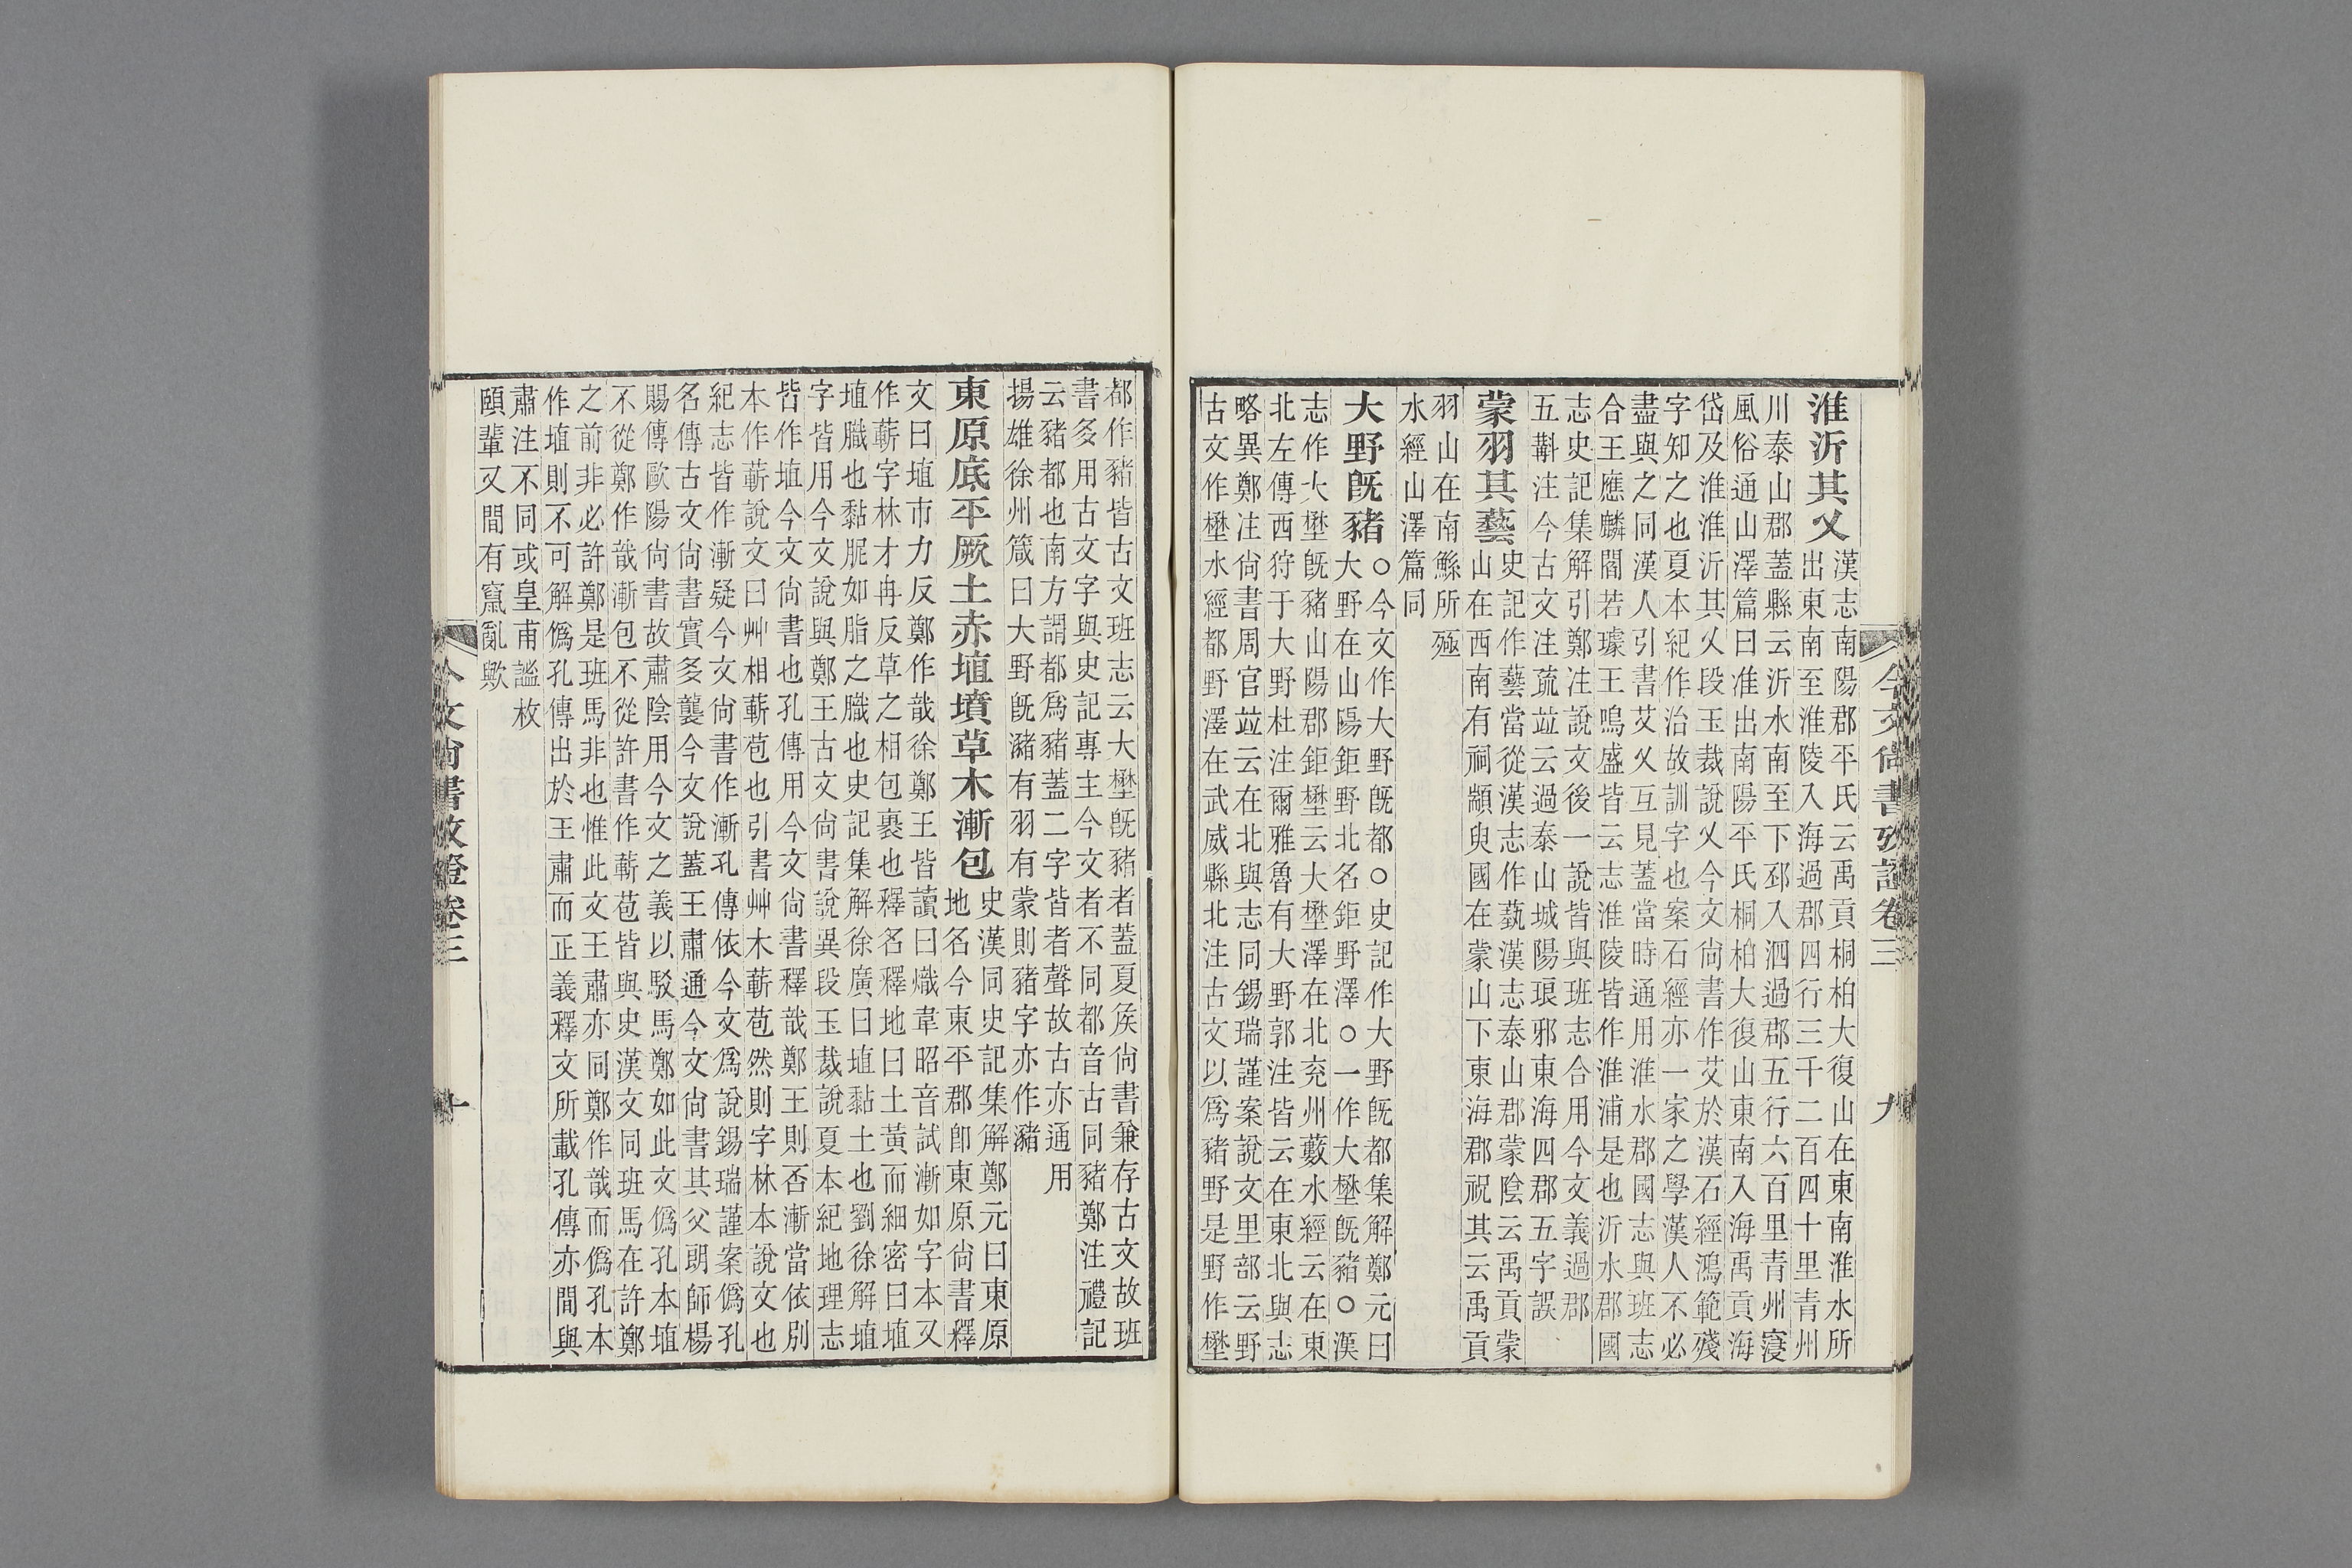 今文尚書攷證卷三　九
淮沂其乂
漢志南陽郡平氏云禹貢桐柏大復山在東南淮水所
出東南至淮陵入海過郡四行三千二百四十里青州
川泰山郡蓋縣云沂水南至下邳入泗過郡五行六百里青州寖
風俗通山澤篇曰淮出南陽平氏桐柏大復山東南入海禹貢海
岱及淮淮沂其乂段玉裁說乂今文尚書作艾於漢石經鴻範殘
字知之也夏本紀作治故訓字也案石經亦一家之學漢人不必
盡與之同漢人引書艾乂互見蓋當時通用淮水郡國志與班志
合王應麟閻若璩王鳴盛皆云志淮陵皆作淮浦是也沂水郡國
志史記集解引鄭注說文後一說皆與班志合用今文義過郡
五斠注今古文注疏竝云過泰山城陽琅邪東海四郡五字誤
蒙羽其藝
史記作藝當從漢志作蓺漢志泰山郡蒙陰云禹貢蒙
山在西南有祠顓臾國在蒙山下東海郡祝其云禹貢
羽山在南鯀所殛
水經山澤篇同
大野旣豬
○今文作大野旣都○史記作大野旣都集解鄭元曰
大野在山陽鉅野北名鉅野澤○一作大壄旣豬○漢
志作大壄旣豬山陽郡鉅壄云大壄澤在北兖州藪水經云在東
北左傳西狩于大野杜注爾雅魯有大野郭注皆云在東北與志
略異鄭注尚書周官竝云在北與志同錫瑞謹案說文里部云野
古文作壄水經都野澤在武威縣北注古文以爲豬野是野作壄
都作豬皆古文班志云大壄旣豬者蓋夏侯尚書兼存古文故班
書多用古文字與史記專主今文者不同都音古同豬鄭注禮記
云豬都也南方謂都爲豬蓋二字皆者聲故古亦通用
揚雄徐州箴曰大野旣瀦有羽有蒙則豬字亦作瀦
東原底平厥土赤埴墳草木漸包
史漢同史記集解鄭元曰東原
地名今東平郡卽東原尚書釋
文曰埴市力反鄭作戠徐鄭王皆讀曰熾韋昭音試漸如字本又
作蔪字林才冉反草之相包裹也釋名釋地曰土黃而細密曰埴
埴膱也黏胒如脂之膱也史記集解徐廣曰埴黏土也劉徐解埴
字皆用今文說與鄭王古文尚書說異段玉裁說夏本紀地理志
皆作埴今文尚書也孔傳用今文尚書釋戠鄭王則否漸當依別
本作蔪說文曰艸相蔪苞也引書艸木蔪苞然則字林本說文也
紀志皆作漸疑今文尚書作漸孔傳依今文爲說錫瑞謹案僞孔
名傳古文尚書實多襲今文說蓋王肅通今文尚書其父朗師楊
賜傳歐陽尚書故肅陰用今文之義以駁馬鄭如此文僞孔本埴
不從鄭作戠漸包不從許書作蔪苞皆與史漢文同班馬在許鄭
之前非必許鄭是班馬非也惟此文王肅亦同鄭作戠而僞孔本
作埴則不可解僞孔傳出於王肅而正義釋文所載孔傳亦間與
肅注不同或皇甫謐枚
頤輩又間有竄亂歟
今文尚書攷證卷三　十